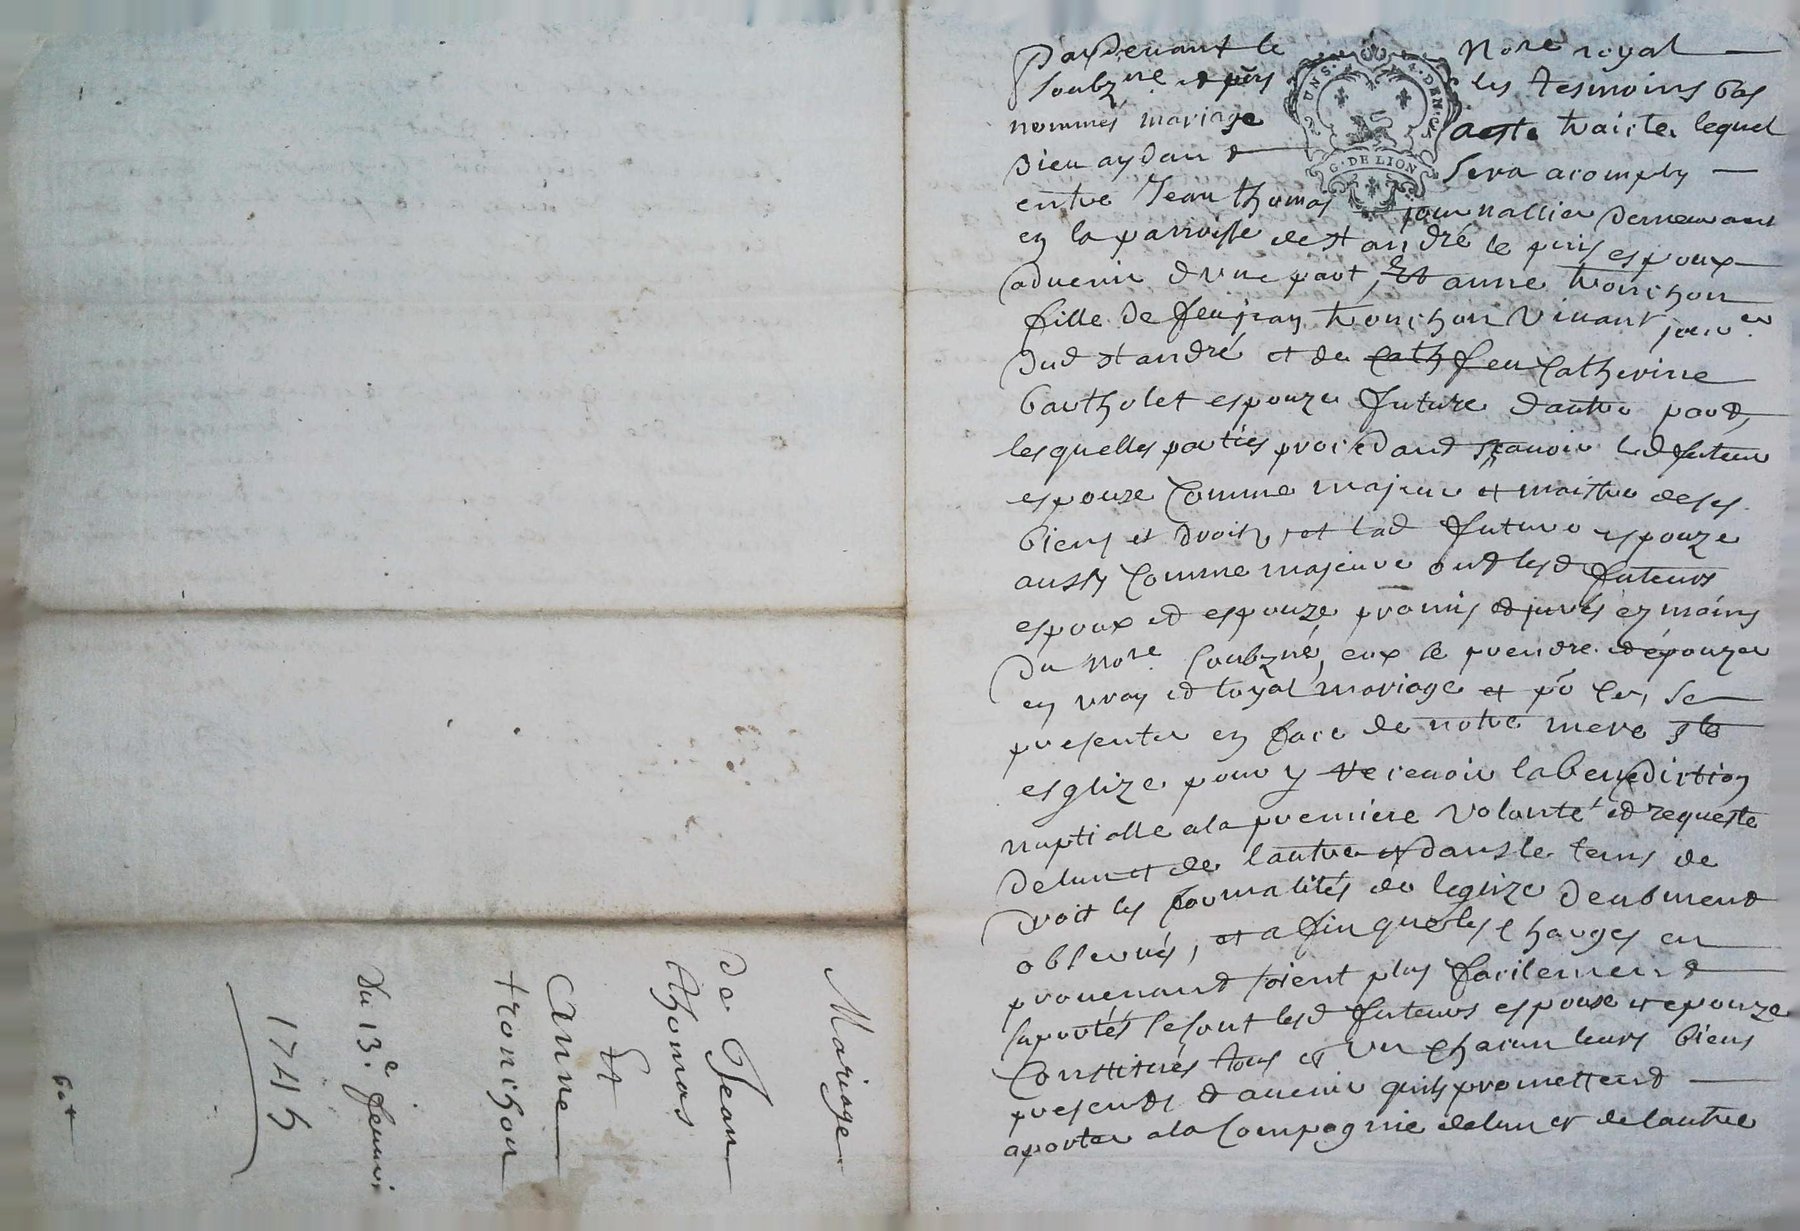 Mariage
De Jean
thomas
Et
Anne
tronchon
Du 13.e feuvri
1745
Pardevant le Nore royal
soubzne et pns les tesmoins bas
nommés mariage a este traicte lequel
Dieu aydant sera acomply
entre Jean thomas journallier demeurant
en la parroisse de st andré le puis espoux
advenir d'une part, Et anne tronchon
fille de feu jean tronchon vivant jour.er
dud st andré et de feu Catherine
bartholet espouze future d'autre part,
lesquelles parties procedant scavoir led futeur
espouze comme majeur et maistre de ses
biens et droits, et lad future espouze
aussy comme majeure ont lesd futeurs
espoux et espouze promis et jurés ez mains
du nore soubzné, eux se prendre et épouzer
en vray et loyal mariage et po cer, se
presenter en face de notre mere ste
esglize pour y recevoir la benediction
nuptialle a la premiere volonté et requeste
de lun et de l'autre et dans le tems de
droit les formalités de leglize deubment
observés, et afin que les charges en
provenant soient plus facilement
suportés se sont lesd futeurs espouse et epouze
constitués tous et un chacun leurs biens
presents et avenir quils promettent
aporter a la compagnie de lun et de lautre
UNS. 4. DEN.
G. DE LION